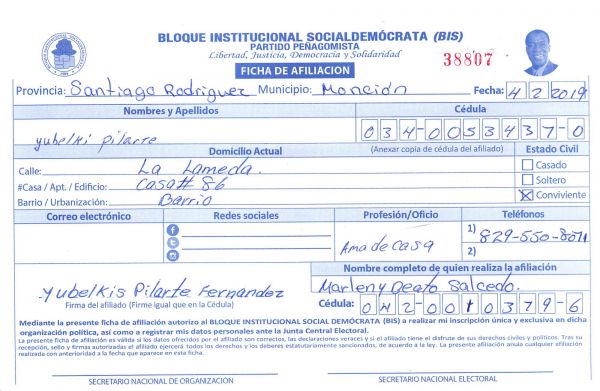 BLOQUE INSTITUCIONAL SOCIALDEMÓCRATA (BIS)
PARTIDO PEÑAGOMISTA
Libertad, Justicia, Democracia y Solidaridad
38807
FICHA DE AFILIACION
Provincia: Santiago Rodriguez Municipio: Monción Fecha: 4/2/2019
Nombres y Apellidos Cédula
yubelki pilarte 034-0053437-0
Domicilio Actual (Anexar copia de cédula del afiliado) Estado Civil
Calle: La Lameda. Casado
#Casa / Apt. / Edificio: Casa# 86 Soltero
Barrio / Urbanización: Barrio Conviviente
Correo electrónico Redes sociales Profesión/Oficio Teléfonos
1) 829-550-8071
Ama de Casa 2)
Nombre completo de quien realiza la afiliación
Yubelkis Pilarte Fernandez Marleny Deato Salcedo.
Firma del afiliado (Firme igual que en la Cédula) Cédula: 042-0010379-6
Mediante la presente ficha de afiliación autorizo al BLOQUE INSTITUCIONAL SOCIAL DEMÓCRATA (BIS) a realizar mi inscripción única y exclusiva en dicha
organización política, así como a registrar mis datos personales ante la Junta Central Electoral.
La presente ficha de afiliación es válida si los datos ofrecidos por el afiliado son correctos, las declaraciones veraces y si el afiliado tiene el disfrute de sus derechos civiles y políticos. Tras su
recepción, sello y firmas autorizadas el afiliado ejercerá todos los derechos y los deberes estatutariamente sancionados, de acuerdo a la ley. La presente afiliación anula cualquier afiliación
realizada con anterioridad a la fecha que aparece en esta ficha.
SECRETARIO NACIONAL DE ORGANIZACIÓN SECRETARIO NACIONAL ELECTORAL